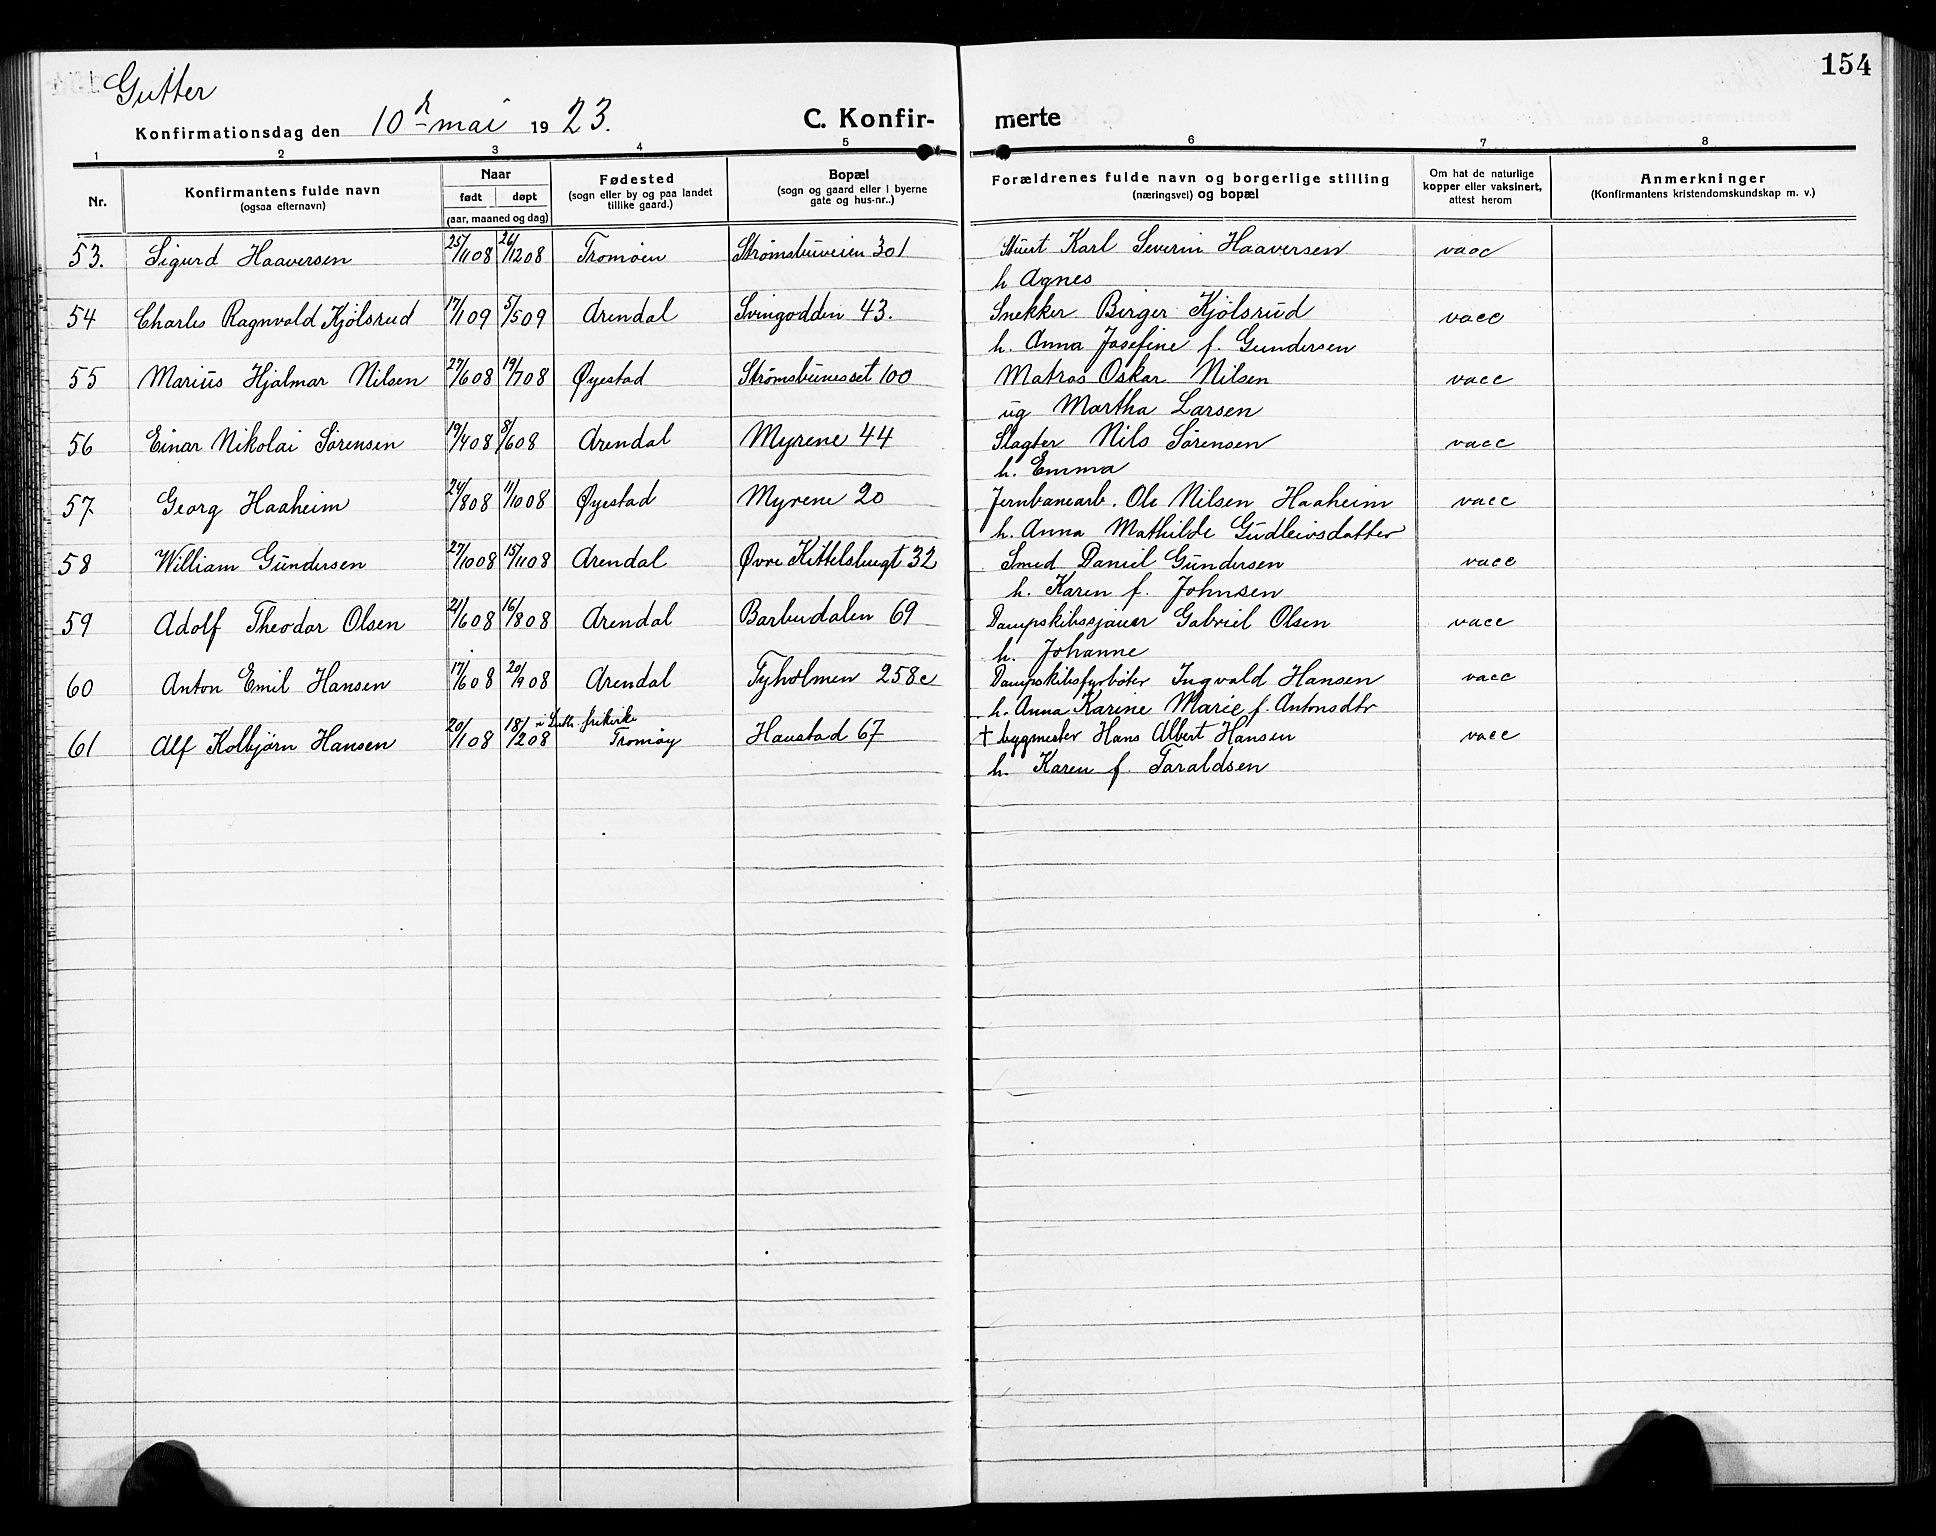 154
Gutter
Konfirmationsdag den 10d mai 1923.
C. Konfir- merte
1 2 3 4 5 6 7 8
Nr.
Konfirmantens fulde navn
(ogsaa efternavn)
Naar
født døpt
(aar, maaned og dag)
Fødested
(sogn eller by og paa landet
tillike gaard.)
Bopæl
(sogn og gaard eller i byerne
gate og hus-nr..)
Forældrenes fulde navn og borgerlige stilling
(næringsvei) og bopæl
Om hat de naturlige
kopper eller vaksinert,
attest herom
Anmerkninger
(Konfirmantens kristendomskundskap m. v.)
53. Sigurd Haaversen 25/11 08 26/12 08 Tromøen Strømsbuveien 301 Stuert Karl Severin Haaversen vacc
h Agnes
54 Charles Ragnvald Kjölsrud 17/1 09 5/5 09 Arendal Svinodden 43. Snekker Birger Kjölsrud vacc
h. Anna Josefine f. Gundersen
55 Marius Hjalmar Nilsen 27/6 08 19/7 08 Øyestad Strømsbunesset 100 Matros Oskar Nilsen vacc
ug Martha Larsen
56 Einar Nikolai Sörensen 19/4 08 8/6 08 Arendal Myrene 44 Slagter Nils Sörensen vacc
h. Emma
57 Georg Haaheim 24/8 08 11/10 08 Øyestad Myrene 20 Jernbanearb. Ole Nilsen Haaheim vacc
h. Anna Mathilde Gudleivsdatter
58 William Gundersen 27/10 08 15/11 08 Arendal Øvre Kittelsbugt 32 Smed Daniel Gundersen vacc
h. Karen f. Johnsen
59 Adolf Theodor Olsen 21/6 08 16/8 08 Arendal Barbudalen 69 Dampskibssjauer Gabriel Olsen vacc
h. Johanne
60 Anton Emil Hansen 17/6 08 20/9 08 Arendal Tyholmen 258c Dampskibsfyrböter Ingvald Hansen vacc
h. Anna Karine Marie f. Antonsdtr
61 Alf Kolbjörn Hansen 20/1 08 18/12 08 i Luth. frikirke Tromøy Havstad 67 † bygmester Hans Albert Hansen vacc
h. Karen f. Taraldsen